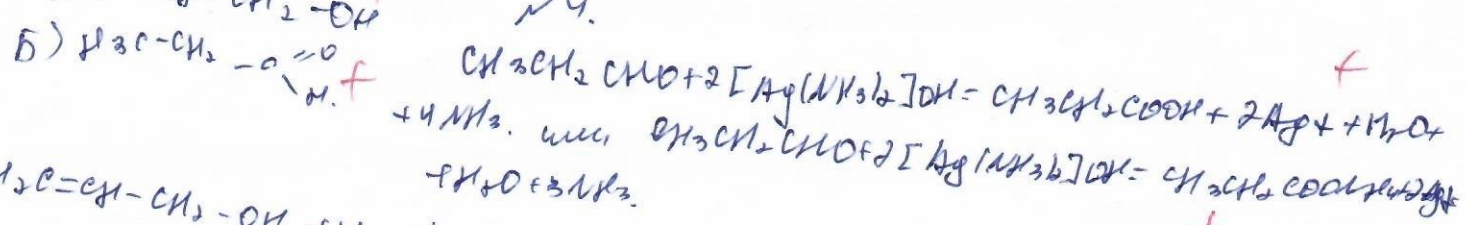 CH2-OH
N4.
Б) H3C-CH2-C=O
H.
CH3CH2CHO+2[Ag(NH3)2]OH=CH3CH2COOH+2Ag↓+H2O+
+4NH3. или CH3CH2CHO+2[Ag(NH3)2]OH=CH3CH2COONH4+2Ag↓
+H2O+3NH3.
H2C=CH-CH2-OH